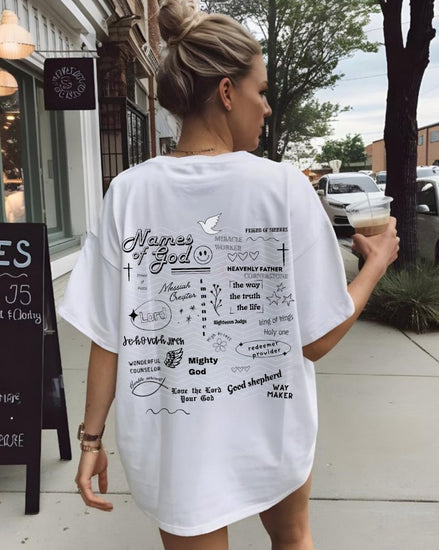 ES
35
FRIEND OF SINNERS
Names
of God
MIRACLE
WORKER
HEAVENLY FATHER
CORNERSTONE
Messiah
Creator
Immanuel
the way
the truth
the life
LORD
Righteous Judge
King of kings
Holy one
Jehovah Jireh
redeemer
provider
WONDERFUL
COUNSELOR
Mighty
God
Good shepherd
Love the Lord
Your God
WAY
MAKER